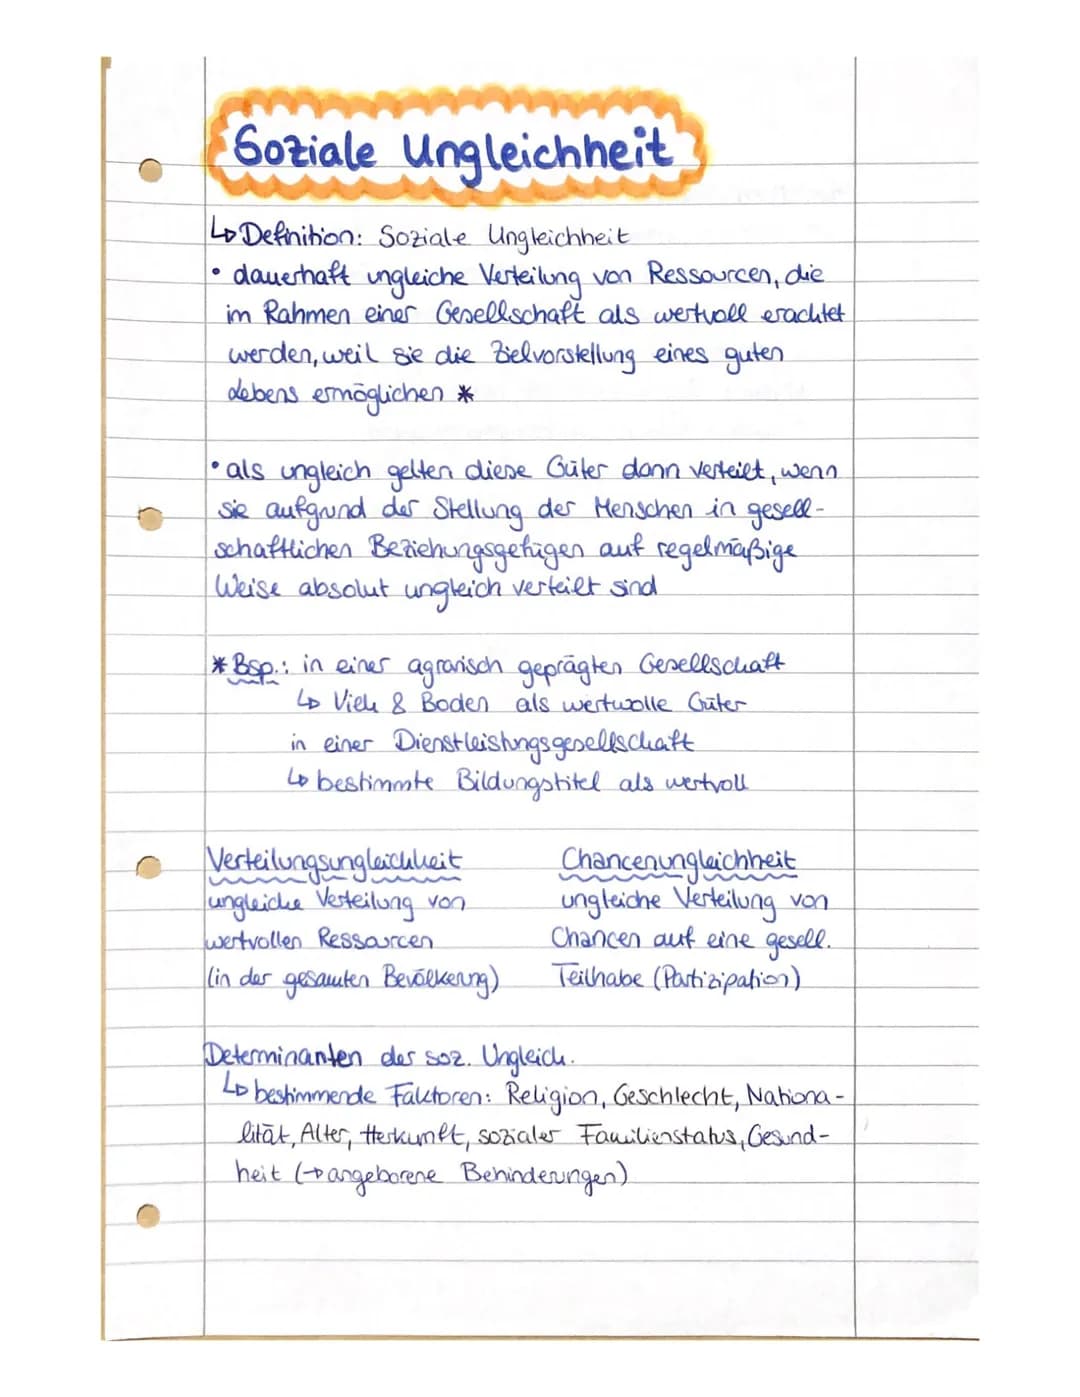 Soziale Ungleichheit
↳ Definition: Soziale Ungleichheit
• dauerhaft ungleiche Verteilung von Ressourcen, die
im Rahmen einer Gesellschaft als wertvoll erachtet
werden, weil sie die Zielvorstellung eines guten
Lebens ermöglichen *
• als ungleich gelten diese Güter dann verteilt, wenn
sie aufgrund der Stellung der Menschen in gesell-
schaftlichen Beziehungsgefügen auf regelmäßige
Weise absolut ungleich verteilt sind
* Bsp.: in einer agrarisch geprägten Gesellschaft
↳ Vieh & Boden als wertwolle Güter
in einer Dienstleistungsgesellschaft
↳ bestimmte Bildungstitel als wertvoll
Verteilungsungleichheit Chancenungleichheit
ungleiche Verteilung von ungleiche Verteilung von
wertvollen Ressourcen Chancen auf eine gesell.
(in der gesamten Bevölkerung) Teilhabe (Partizipation)
Determinanten der soz. Ungleich.
↳ bestimmende Faktoren: Religion, Geschlecht, Nationa-
lität, Alter, Herkunft, sozialer Familienstatus, Gesund-
heit (→ angeborene Behinderungen)